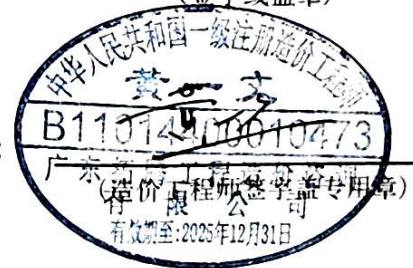 (签字或盖章)
中华人民共和国一级注册造价工程师
黄
B11014400010473
广东
工程
(造价工程师签字盖专用章)
有限公司
有效期至:2025年12月31日